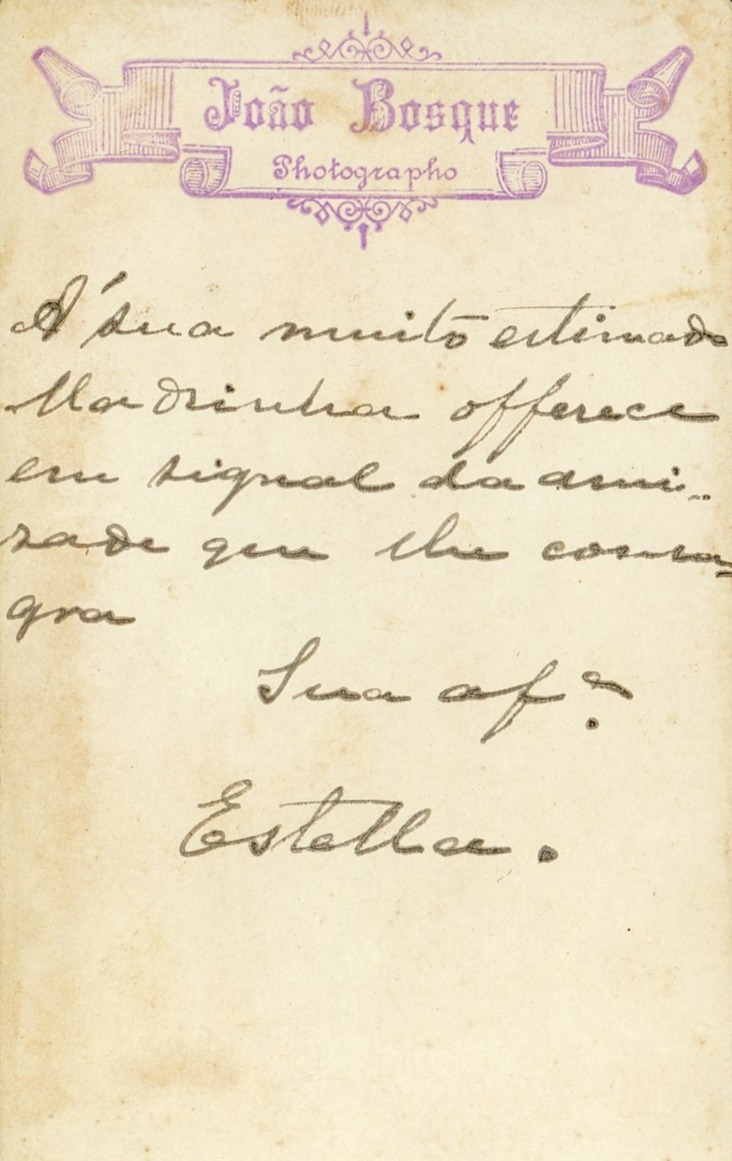 João Bosque
Photographo
A' sua muito estimada
Madrinha offerece
em signal da ami-
zade que lhe consa-
gra
Sua af.ª
Estella.